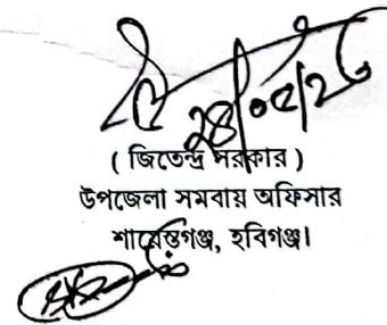 ২৪/০৫/২৫
( জিতেন্দ্র সরকার )
উপজেলা সমবায় অফিসার
শায়েস্তাগঞ্জ, হবিগঞ্জ।